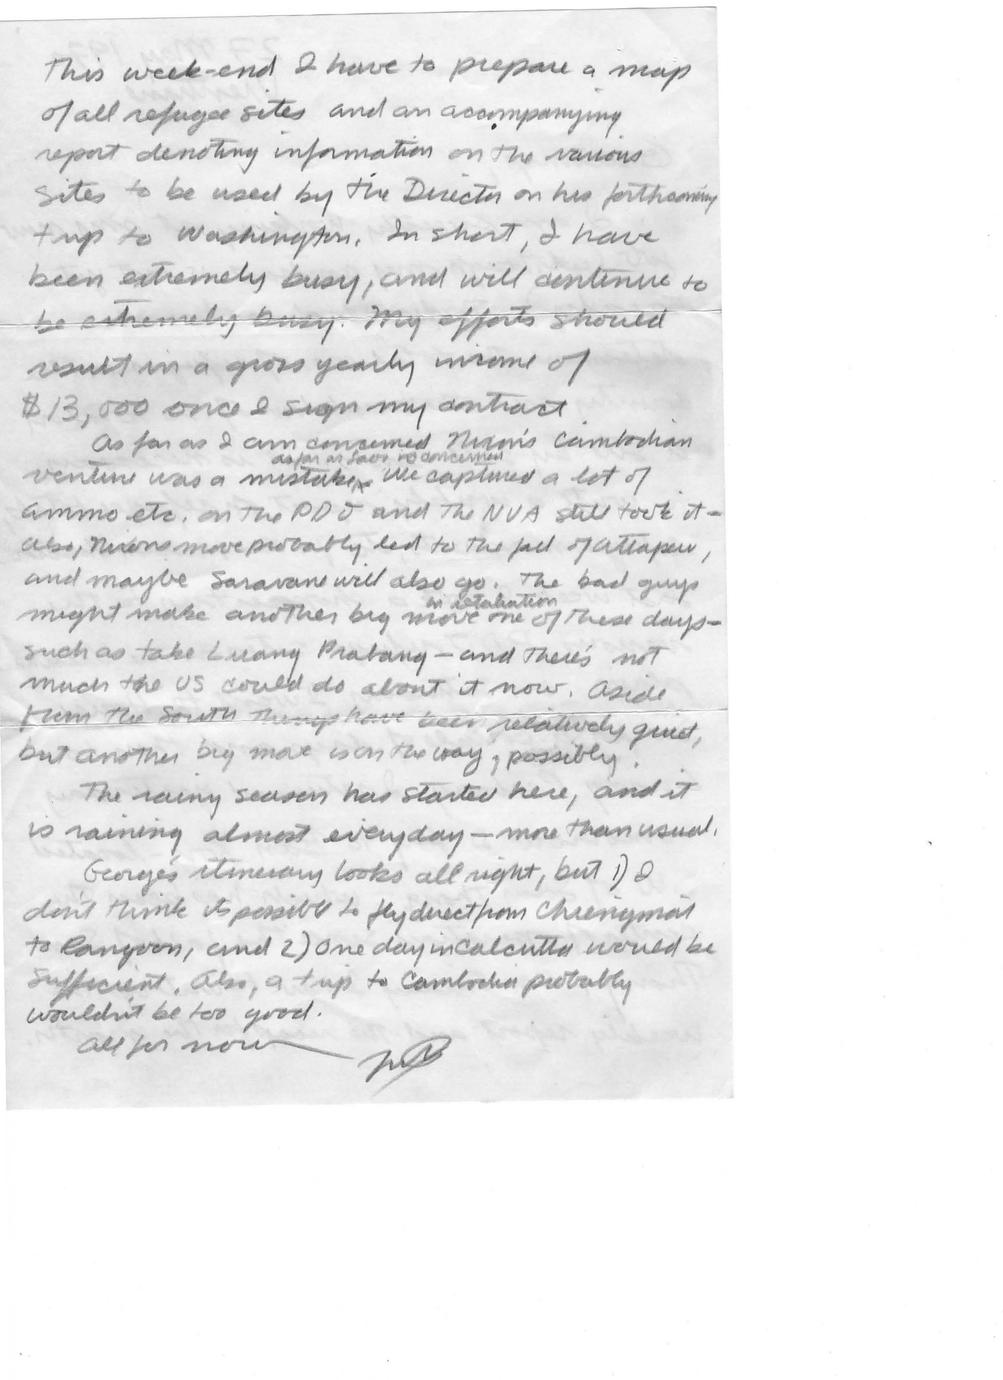 This week-end I have to prepare a map
of all refugee sites and an accompanying
report denoting information on the various
sites to be used by the Director on his forthcoming
trip to Washington. In short, I have
been extremely busy, and will continue to
be extremely busy. My efforts should
result in a gross yearly income of
$13,000 once I sign my contract
As far as I am concerned Nixon's Cambodian
as far as Laos is concerned
venture was a mistake. We captured a lot of
ammo etc. on the PDJ and the NVA still took it -
also, Nixons move probably led to the fall of Attapeu,
and maybe Saravane will also go. The bad guys
in retaliation
might make another big move one of these days -
such as take Luang Prabang - and there's not
much the US could do about it now. Aside
from the South things have been relatively quiet,
but another big move is on the way, possibly.
The rainy season has started here, and it
is raining almost everyday - more than usual.
George's itinerary looks all right, but 1) I
don't think its possible to fly direct from Chiengmai
to Rangoon, and 2) One day in Calcutta would be
sufficient. Also, a trip to Cambodia probably
wouldn't be too good.
All for now